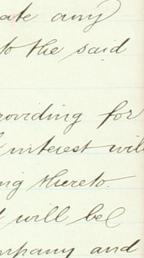 ate any
to the said
roviding for
interest will
ng thereto.
will be
mpany and